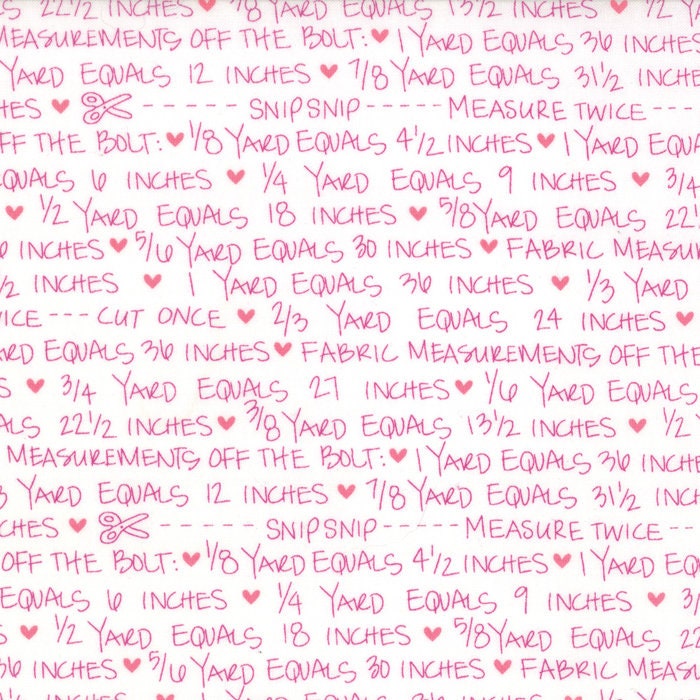 ♥ 7/8 YARD EQUALS 13 1/2 INCHES ♥ 1/2
MEASUREMENTS OFF THE BOLT: ♥ 1 YARD EQUALS 36 INCHES
YARD EQUALS 12 INCHES ♥ 7/8 YARD EQUALS 31 1/2 INCH
HES ♥ ----- SNIP SNIP ----- MEASURE TWICE ---
FF THE BOLT: ♥ 1/8 YARD EQUALS 4 1/2 INCHES ♥ 1 YARD EQUA
QUALS 6 INCHES ♥ 1/4 YARD EQUALS 9 INCHES ♥ 3/4
♥ 1/2 YARD EQUALS 18 INCHES ♥ 5/8 YARD EQUALS 22
6 INCHES ♥ 5/6 YARD EQUALS 30 INCHES ♥ FABRIC MEASUR
/2 INCHES ♥ 1 YARD EQUALS 36 INCHES ♥ 1/3 YARD
ICE --- CUT ONCE ♥ 2/3 YARD EQUALS 24 INCHES ♥
ARD EQUALS 36 INCHES ♥ FABRIC MEASUREMENTS OFF THE
S ♥ 3/4 YARD EQUALS 27 INCHES ♥ 1/6 YARD EQUALS
ALS 22 1/2 INCHES ♥ 3/8 YARD EQUALS 13 1/2 INCHES ♥ 1/2
MEASUREMENTS OFF THE BOLT: ♥ 1 YARD EQUALS 36 INCHE
3 YARD EQUALS 12 INCHES ♥ 7/8 YARD EQUALS 31 1/2 INCHE
CHES ♥ ----- SNIP SNIP ----- MEASURE TWICE --
OFF THE BOLT: ♥ 1/8 YARD EQUALS 4 1/2 INCHES ♥ 1 YARD EQU
EQUALS 6 INCHES ♥ 1/4 YARD EQUALS 9 INCHES ♥ 3/
S ♥ 1/2 YARD EQUALS 18 INCHES ♥ 5/8 YARD EQUALS 22
36 INCHES ♥ 5/6 YARD EQUALS 30 INCHES ♥ FABRIC MEASU